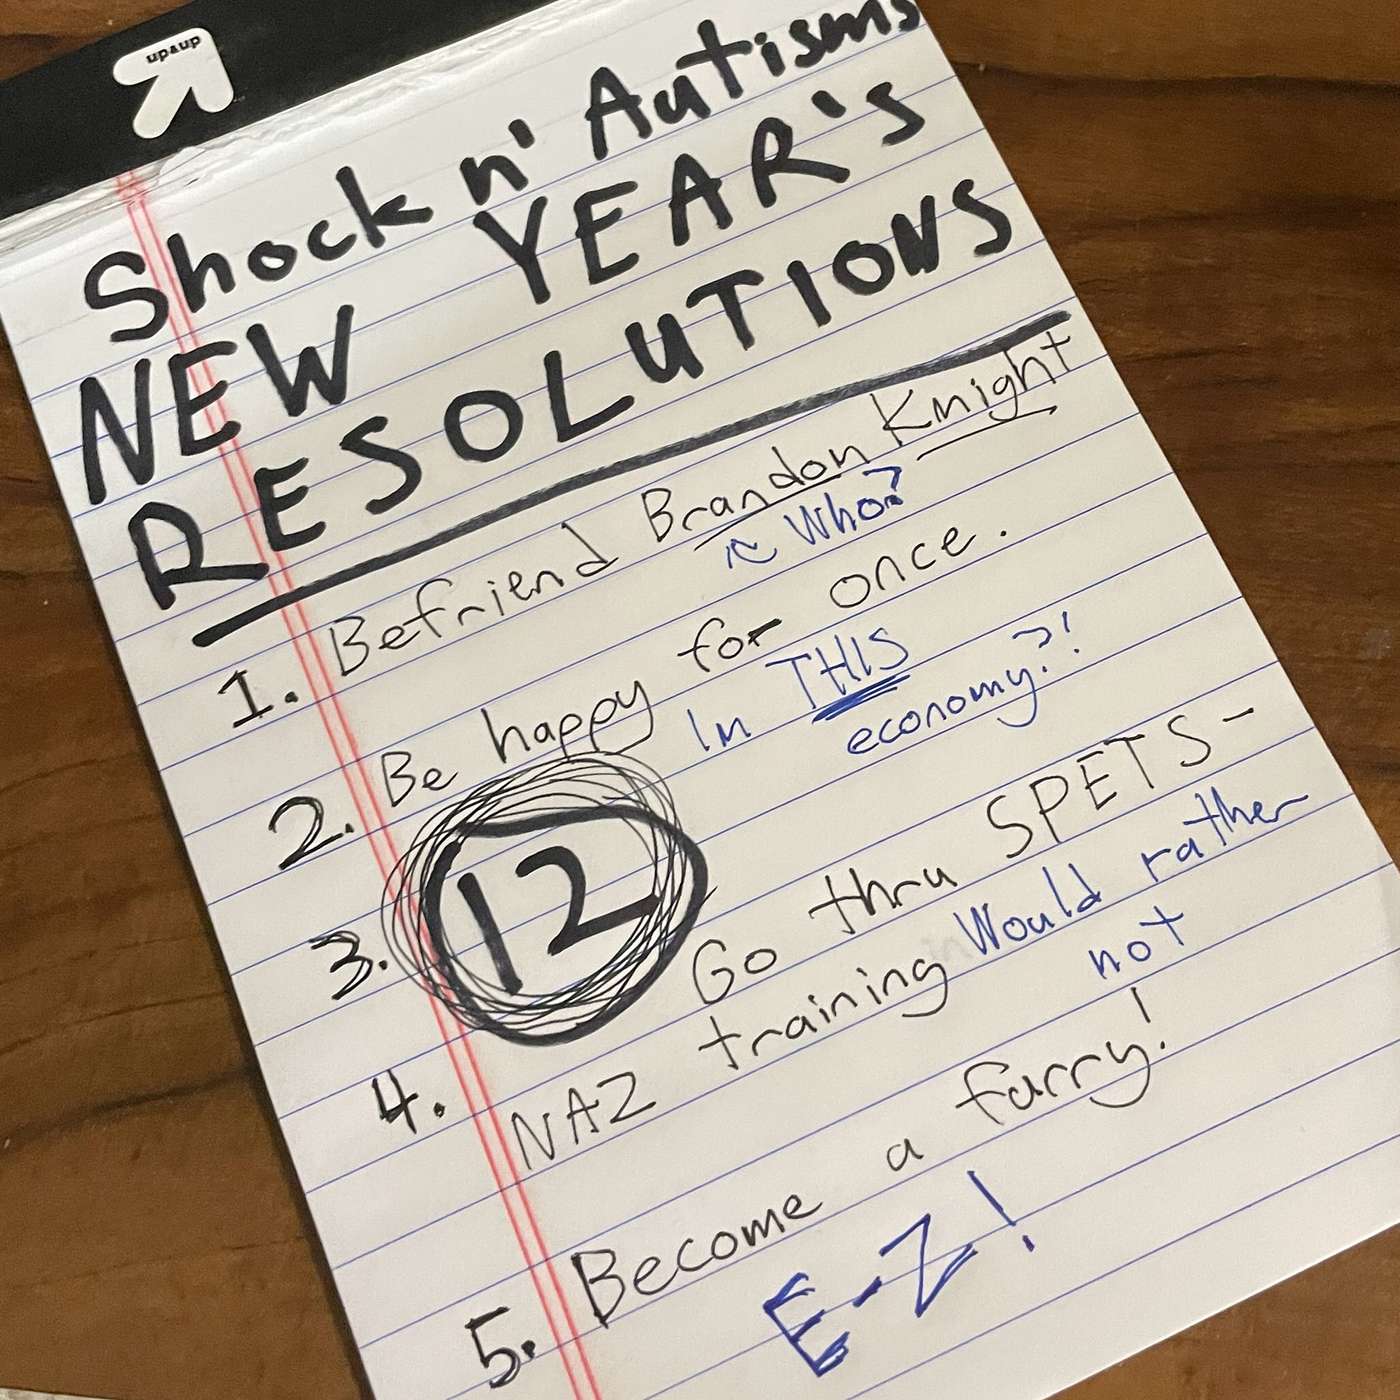 up&up
Shock n' Autisms
NEW YEAR's
RESOLUTIONS
1. Befriend Brandon Knight
Who?
2. Be happy for once.
In THIS
economy?!
3. 12
4. Go thru SPETS-
NAZ training
Would rather
not
5. Become a furry!
E-Z!